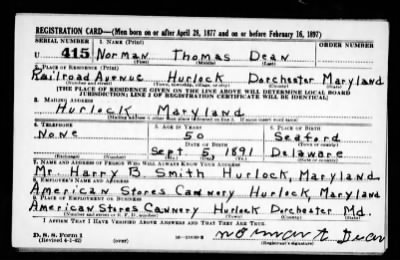 REGISTRATION CARD—(Men born on or after April 28, 1877 and on or before February 16, 1897)
SERIAL NUMBER 1. NAME (Print) ORDER NUMBER
U 415 Norman Thomas Dean
(First) (Middle) (Last)
2. PLACE OF RESIDENCE (Print)
Railroad Avenue Hurlock Dorchester Maryland
(Number and street) (Town, township, village, or city) (County) (State)
[THE PLACE OF RESIDENCE GIVEN ON THE LINE ABOVE WILL DETERMINE LOCAL BOARD
JURISDICTION; LINE 2 OF REGISTRATION CERTIFICATE WILL BE IDENTICAL]
3. MAILING ADDRESS
Hurlock Maryland
[Mailing address if other than place indicated on line 2. If same insert word same]
4. TELEPHONE 5. AGE IN YEARS 6. PLACE OF BIRTH
None 50 Seaford
DATE OF BIRTH (Town or county)
Sept 5 1891 Delaware
(Exchange) (Number) (Mo.) (Day) (Yr.) (State or country)
7. NAME AND ADDRESS OF PERSON WHO WILL ALWAYS KNOW YOUR ADDRESS
Mr. Harry B. Smith Hurlock, Maryland
8. EMPLOYER'S NAME AND ADDRESS
American Stores Cannery Hurlock, Maryland
9. PLACE OF EMPLOYMENT OR BUSINESS
American Stores Cannery Hurlock Dorchester Md.
(Number and street or R. F. D. number) (Town) (County) (State)
I AFFIRM THAT I HAVE VERIFIED ABOVE ANSWERS AND THAT THEY ARE TRUE.
D. S. S. Form 1
(Revised 4-1-42) (over) Norman T Dean
(Registrant's signature)